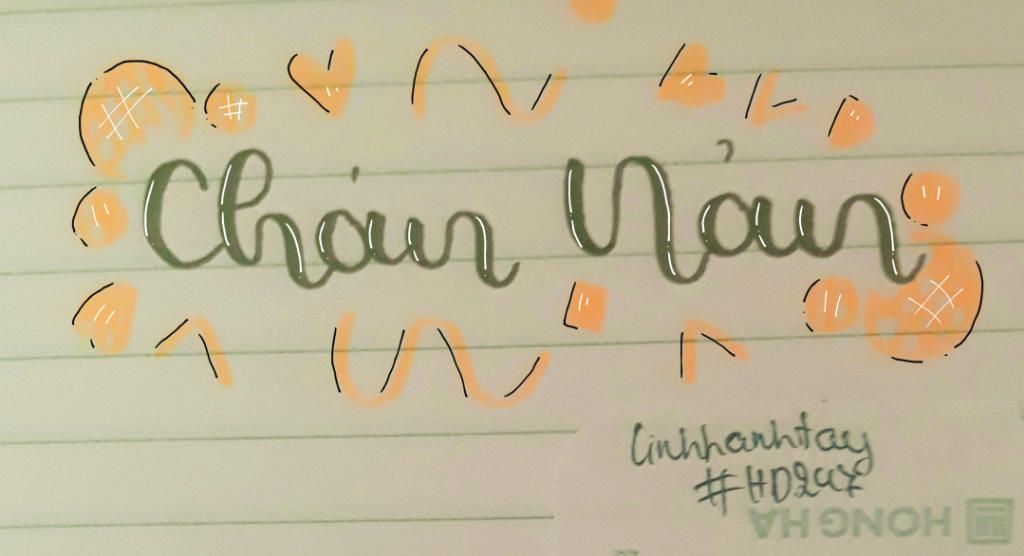 Chán Nản
linhhanhtay
#HD247
HONG HA